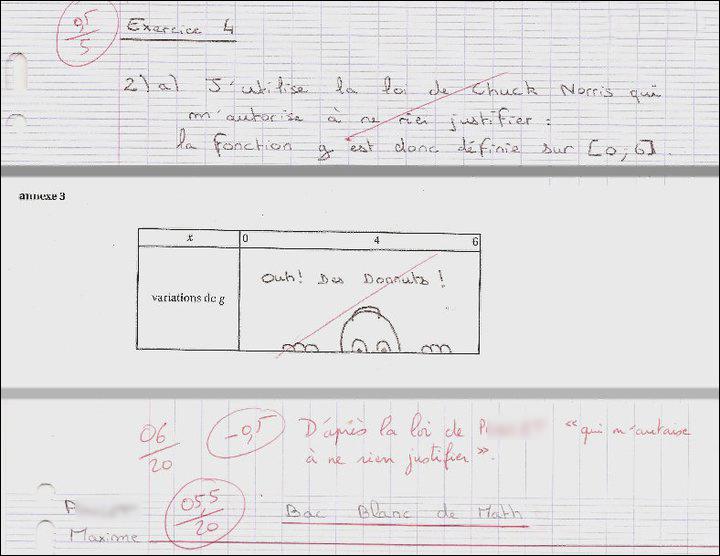 0,5
5
Exercice 4
2) a) J'utilise la loi de Chuck Norris qui
m'autorise à ne rien justifier :
la fonction g est donc définie sur [0;6].
annexe 3
x 0 4 6
Ouh! Des Donnuts !
variations de g
06
20
-0,5
D'après la loi de P « qui m'autorise
à ne rien justifier ».
05,5
20
F
Bac Blanc de Math
Maxime